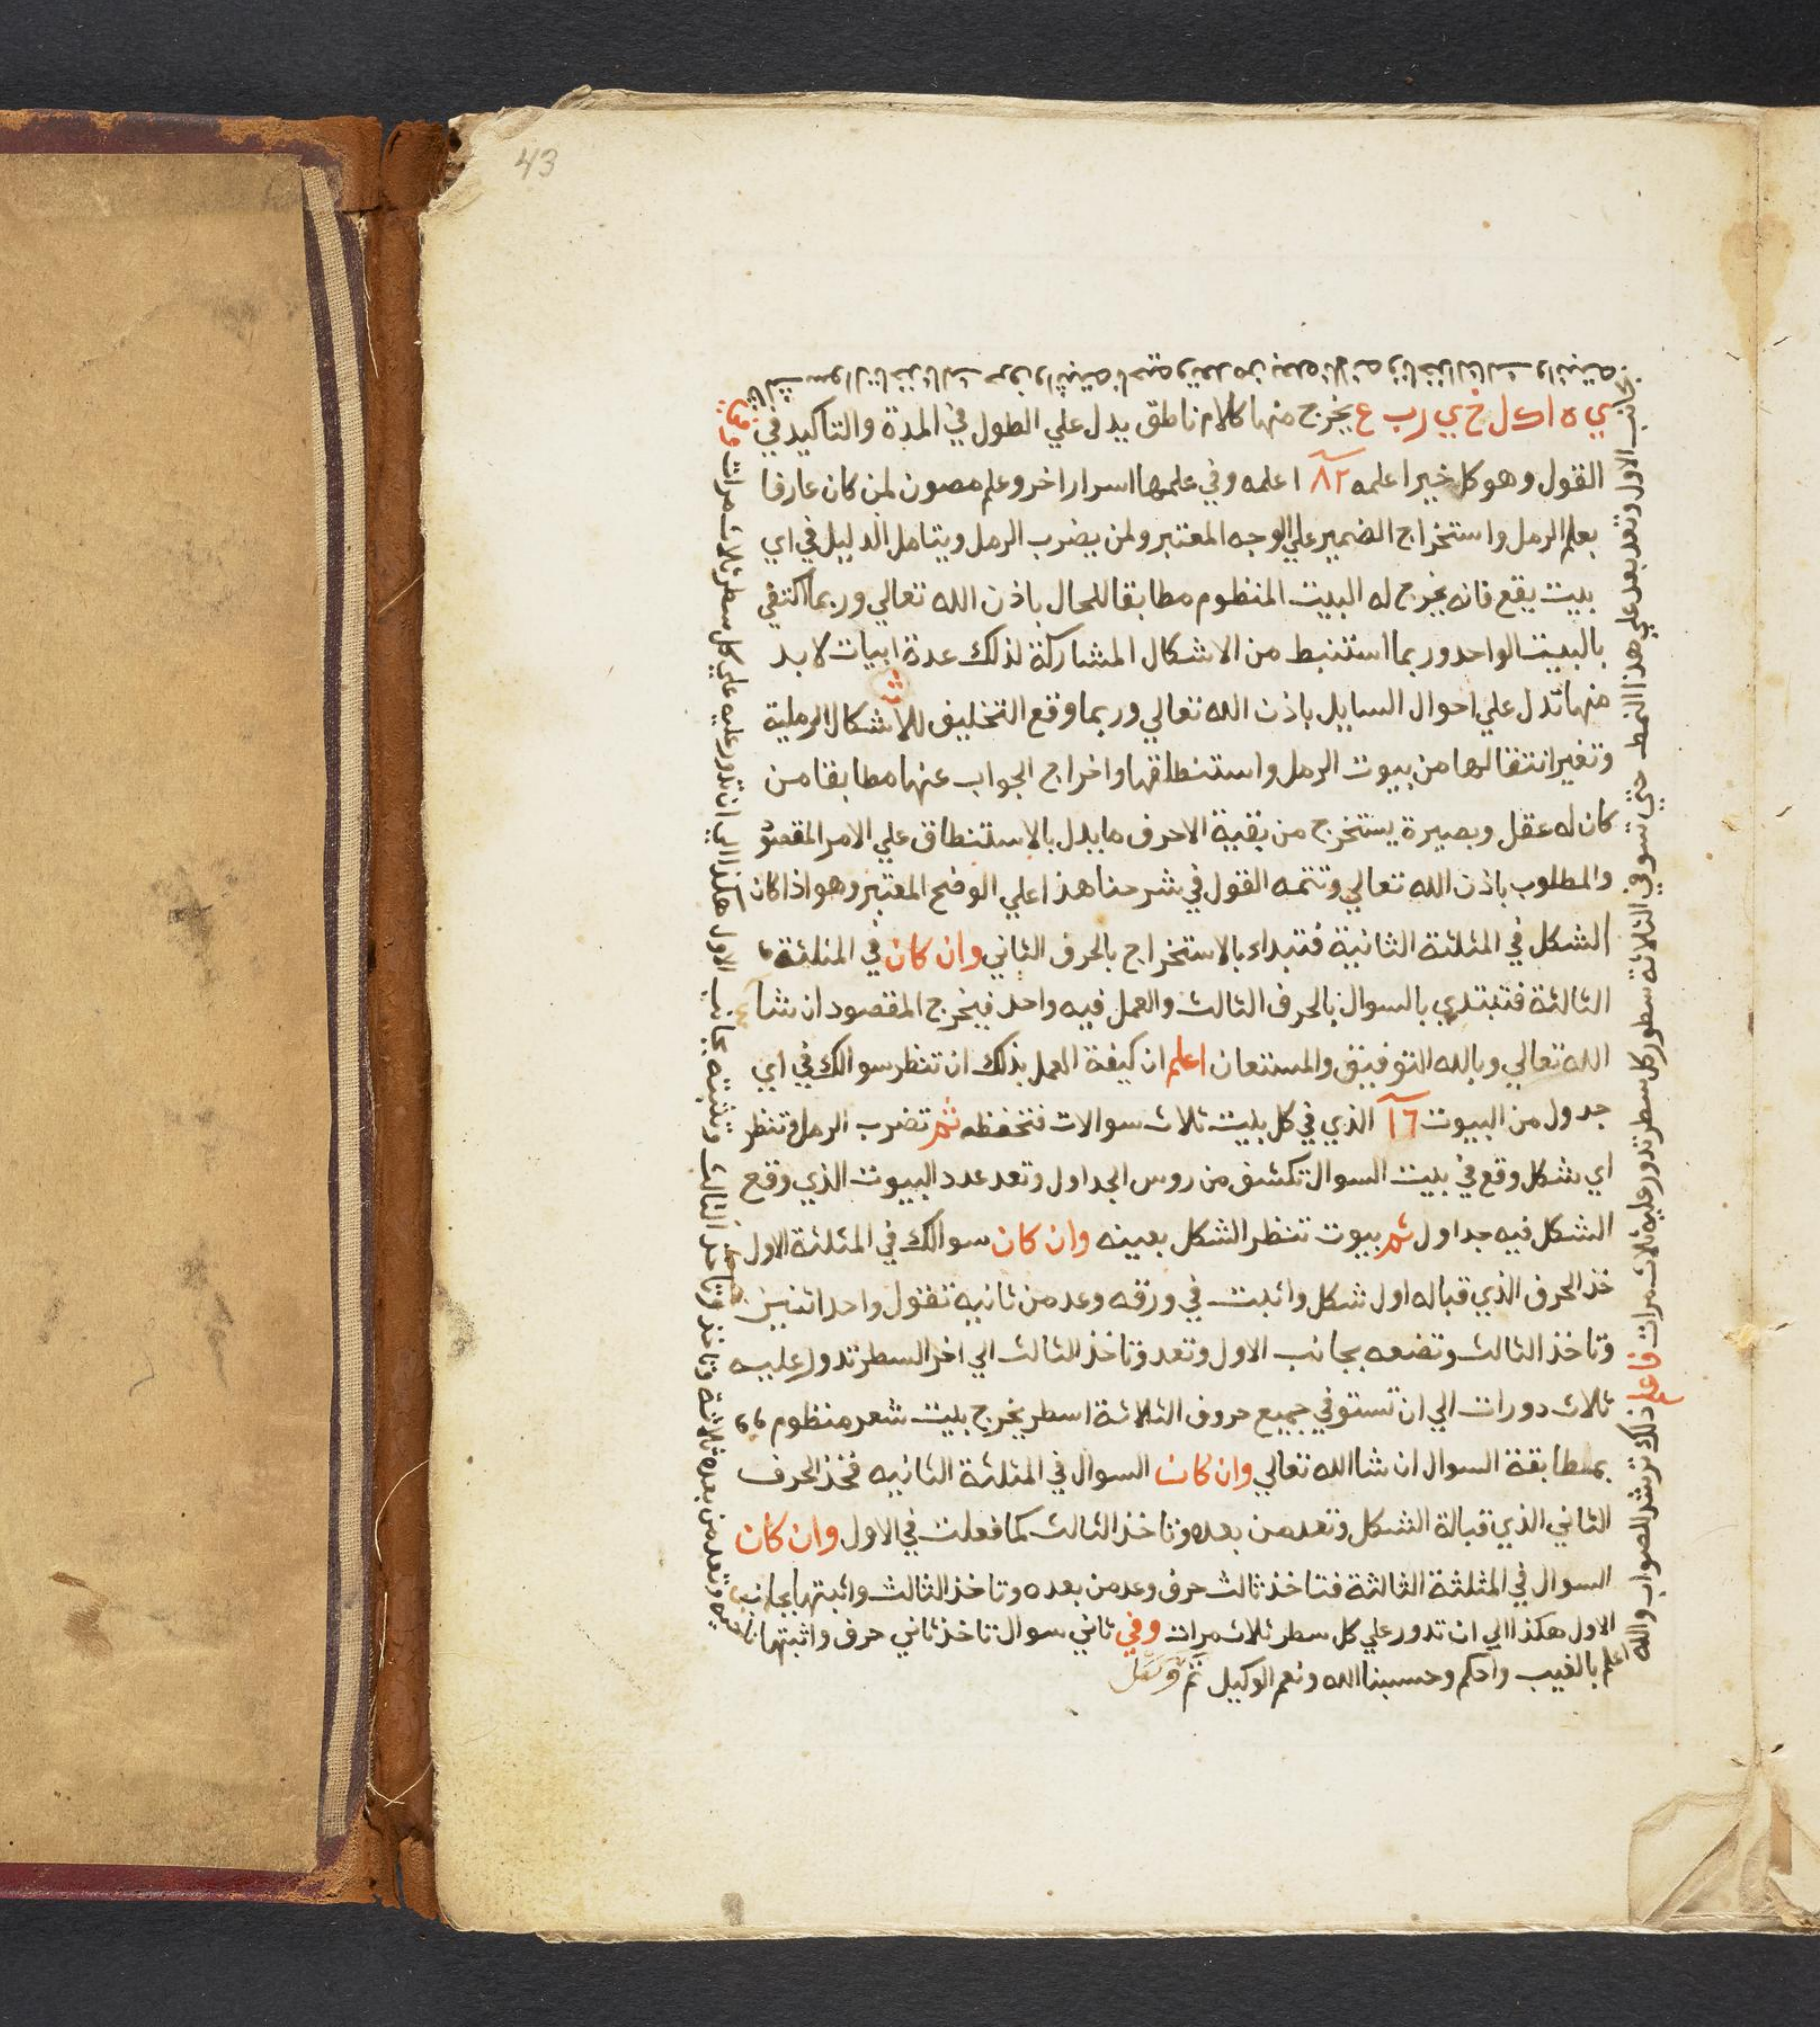 43
ي ه ا ك ل خ ي ر ب ع يخرج منها كلام ناطق يدل علي الطول في المدة والتاكيد في
القول وهو كل خير اعلمه ٨٢ اعلمه وفي علمها اسرار اخر وعلم مصون لمن كان عارفا
بعلم الرمل واستخراج الضمير علي الوجه المعتبر ولمن يضرب الرمل ويتامل الدليل في اي
بيت يقع فانه يخرج له البيت المنظوم مطابقا للحال باذن الله تعالي وربما اكتفي
بالبيت الواحد وربما استنبط من الاشكال المشاركة لذلك عدة ابيات لا بد
منها تدل علي احوال السايل باذن الله تعالي وربما وقع التخليف للاشكال الرملية
وتغير انتقالها من بيوت الرمل واستنطاقها واخراج الجواب عنها مطابقا من
كان له عقل وبصيرة يستخرج من بقية الاحرف ما يدل بالاستنطاق علي الامر المقصود
والمطلوب باذن الله تعالي وتتمه القول في شرحنا هذا علي الوضح المعتبر وهو اذا كان
الشكل في المثلثة الثانية فتبداء بالاستخراج بالحرف الثاني وان كان في المثلثة
الثالثة فتبتدي بالسوال بالحرف الثالث والعمل فيه واحد فيخرج المقصود ان شا
الله تعالي وبالله التوفيق والمستعان اعلم ان كيفة العمل بذلك ان تنظر سوالك في اي
جدول من البيوت ١٦ الذي في كل بيت ثلاث سوالات فتحفظه ثم تضرب الرمل وتنظر
اي شكل وقع في بيت السوال تكشف من روس الجداول وتعد عدد البيوت الذي وقع
الشكل فيه جداول ثم بيوت تنظر الشكل بعينه وان كان سوالك في المثلثة الاول
خذ الحرف الذي قباله اول شكل واثبت في ورقه وعد من ثانيه تقول واحد اثنين
وتاخذ الثالث وتضعه بجانب الاول وتعد وتاخذ الثالث الي اخر السطر تدور عليه
ثلاث دورات الي ان تستوفي جميع حروف الثلاثة اسطر يخرج بيت شعر منظوم
بمطابقة السوال ان شا الله تعالي وان كان السوال في المثلثة الثانيه فخذ الحرف
الثاني الذي قبالة الشكل وتعد من بعده وتاخذ الثالث كما فعلت في الاول وان كان
السوال في المثلثة الثالثة فتاخذ ثالث حرف وعد من بعده وتاخذ الثالث واثبتها بجانب
الاول هكذا الي ان تدور علي كل سطر ثلاث مرات وفي ثاني سوال تاخذ ثاني حرف واثبتها
ناحيه وتعد من بعده ثلاثة وتاخذ وتاخذ الثالث وتثبته بجانب الاول هكذا الي ان تدور عليه علي كل سطر ثلاث مرات
سوال تاخذ ثالث حرف واثبته ناحيه وتعد من بعده ثلاثه وتاخذ الثالث واثبته
بجانب الاول وتعد بعد علي هذا النمط حتي تستوفي الثلاثة سطور كل سطر تدور عليه ثلاث مرات فاعلم ذلك ترشد للصواب والله
اعلم بالغيب واحكم وحسبنا الله ونعم الوكيل تم